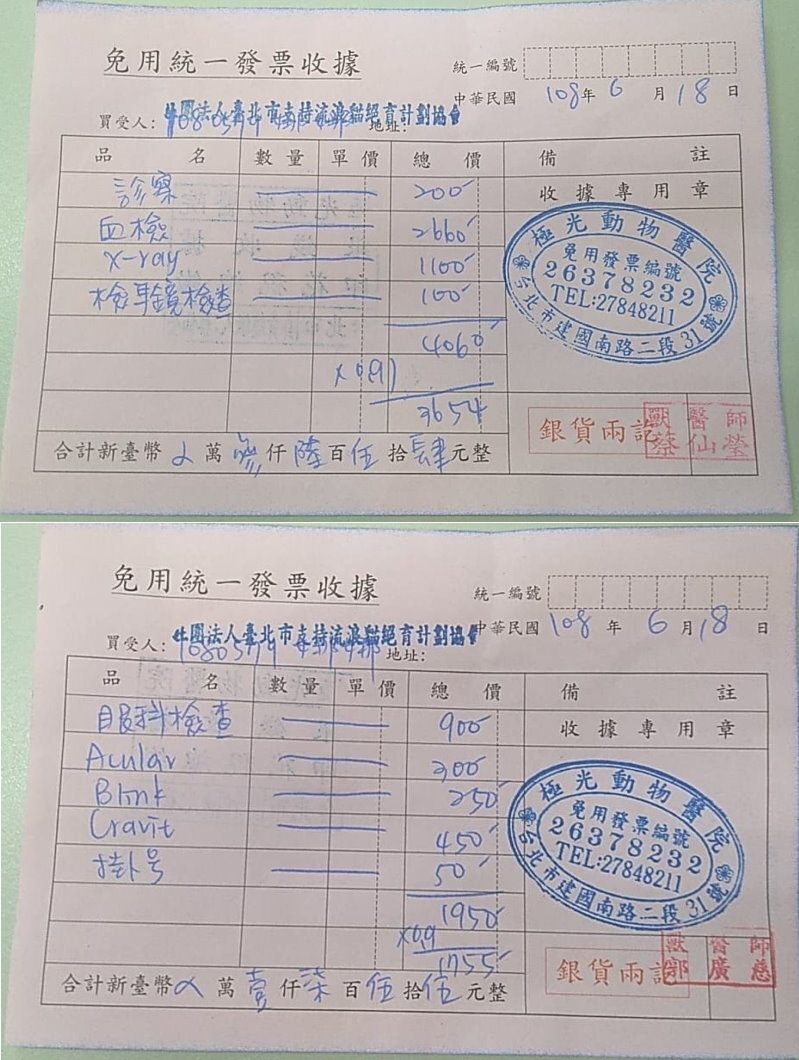 免用統一發票收據
統一編號
中華民國 108年 6 月 18 日
買受人: 社團法人臺北市支持流浪貓絕育計劃協會 地址:
品名 數量 單價 總價 備註
診察 200
收據專用章
血檢 2660
X-ray 1100
檢耳鏡檢查 100
4060
x0.9
3654
極光動物醫院
免用發票編號
26378232
TEL:27848211
台北市建國南路二段31號
銀貨兩訖
獸醫師
蔡仙瑩
合計新臺幣 萬 仟陸百伍拾肆元整
免用統一發票收據
統一編號
中華民國 108 年 6 月 18 日
買受人: 社團法人臺北市支持流浪貓絕育計劃協會 地址:
品名 數量 單價 總價 備註
眼科檢查 900
收據專用章
Acular 300
Blink 250
Cravit 450
掛号 50
1950
x0.9
1755
極光動物醫院
免用發票編號
26378232
TEL:27848211
台北市建國南路二段31號
銀貨兩訖
獸醫師
郭廣慈
合計新臺幣 萬壹仟柒百伍拾伍元整